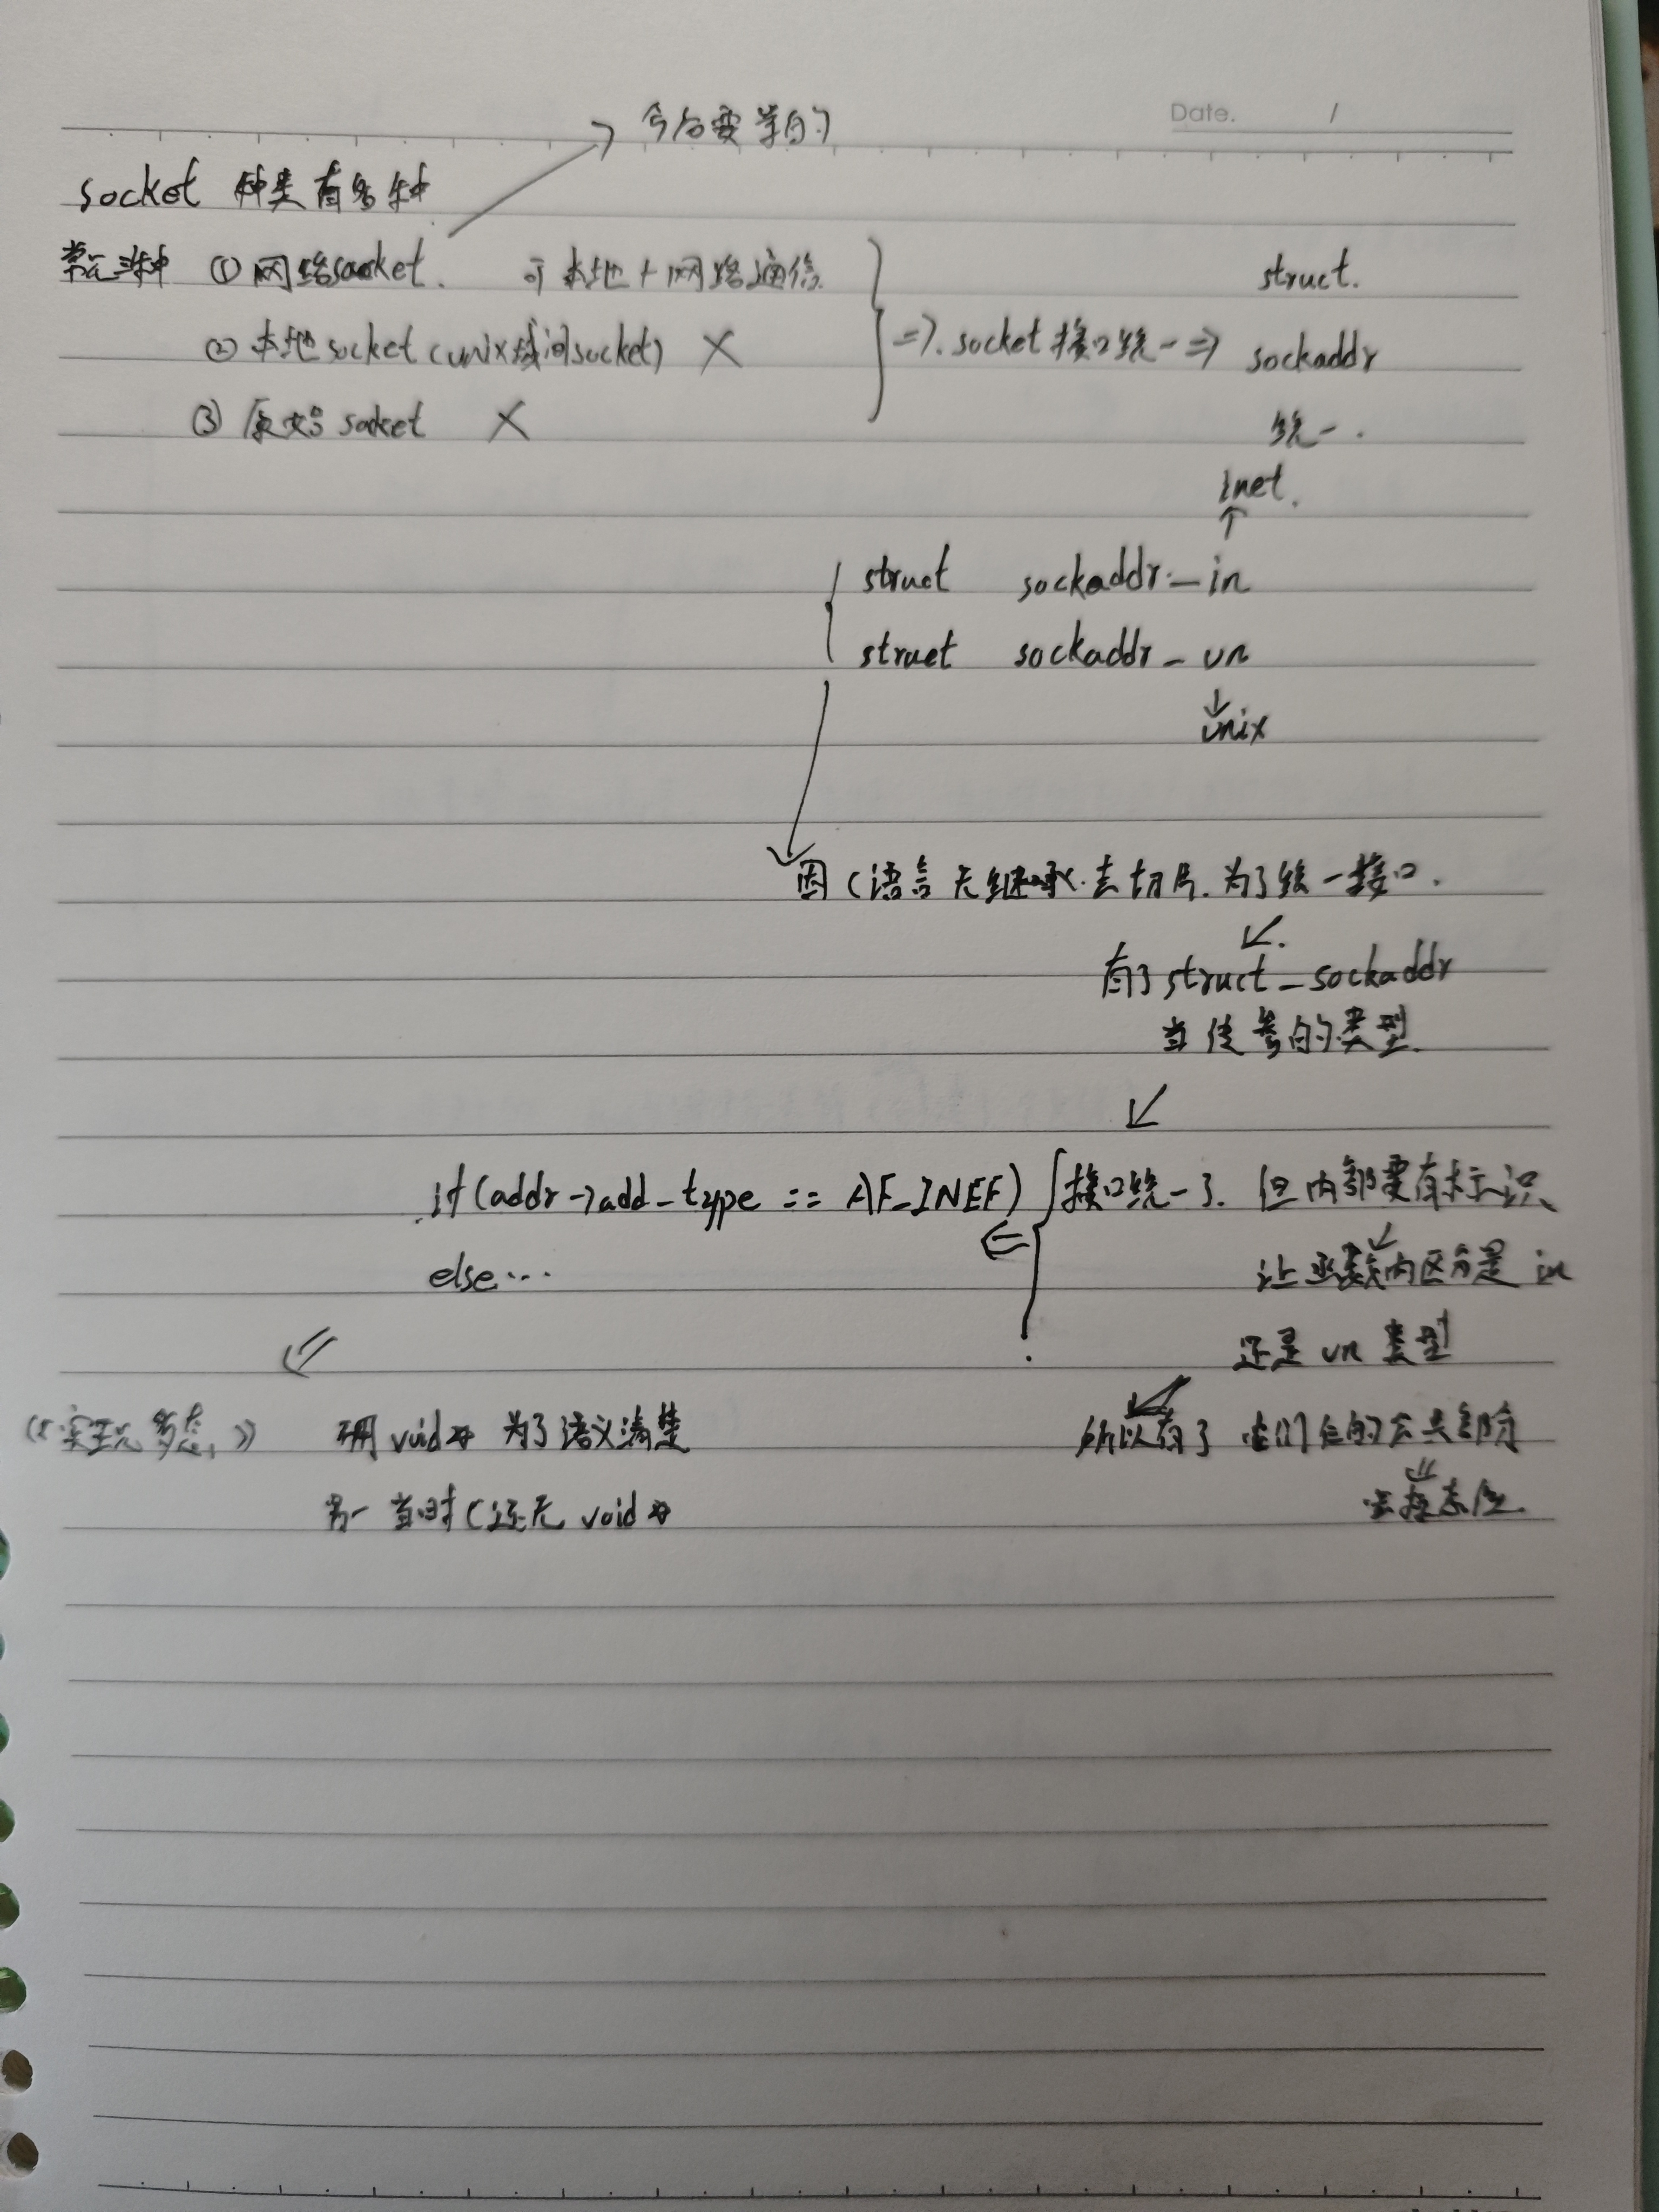 Date. /
今后要学的
socket 种类有多种
常见三种 ① 网络socket. 可本地+网络通信
② 本地socket(unix域间socket) ×
③ 原始socket ×
⇒. socket接口统一⇒
struct.
sockaddr
统一.
inet.
↑
struct sockaddr_in
struct sockaddr_un
↓
unix
因C语言无继承.去切片.为了统一接口.
有了struct_sockaddr
当传参的类型.
接口统一了. 但内部要有标识
if(addr->add_type == AF_INEF)
else...
让函数内区分是 in
还是 un 类型
所以有了 它们 的公共字段
去标示
《实现多态》
不用 void* 为了语义清楚
另一 当时C还无 void*